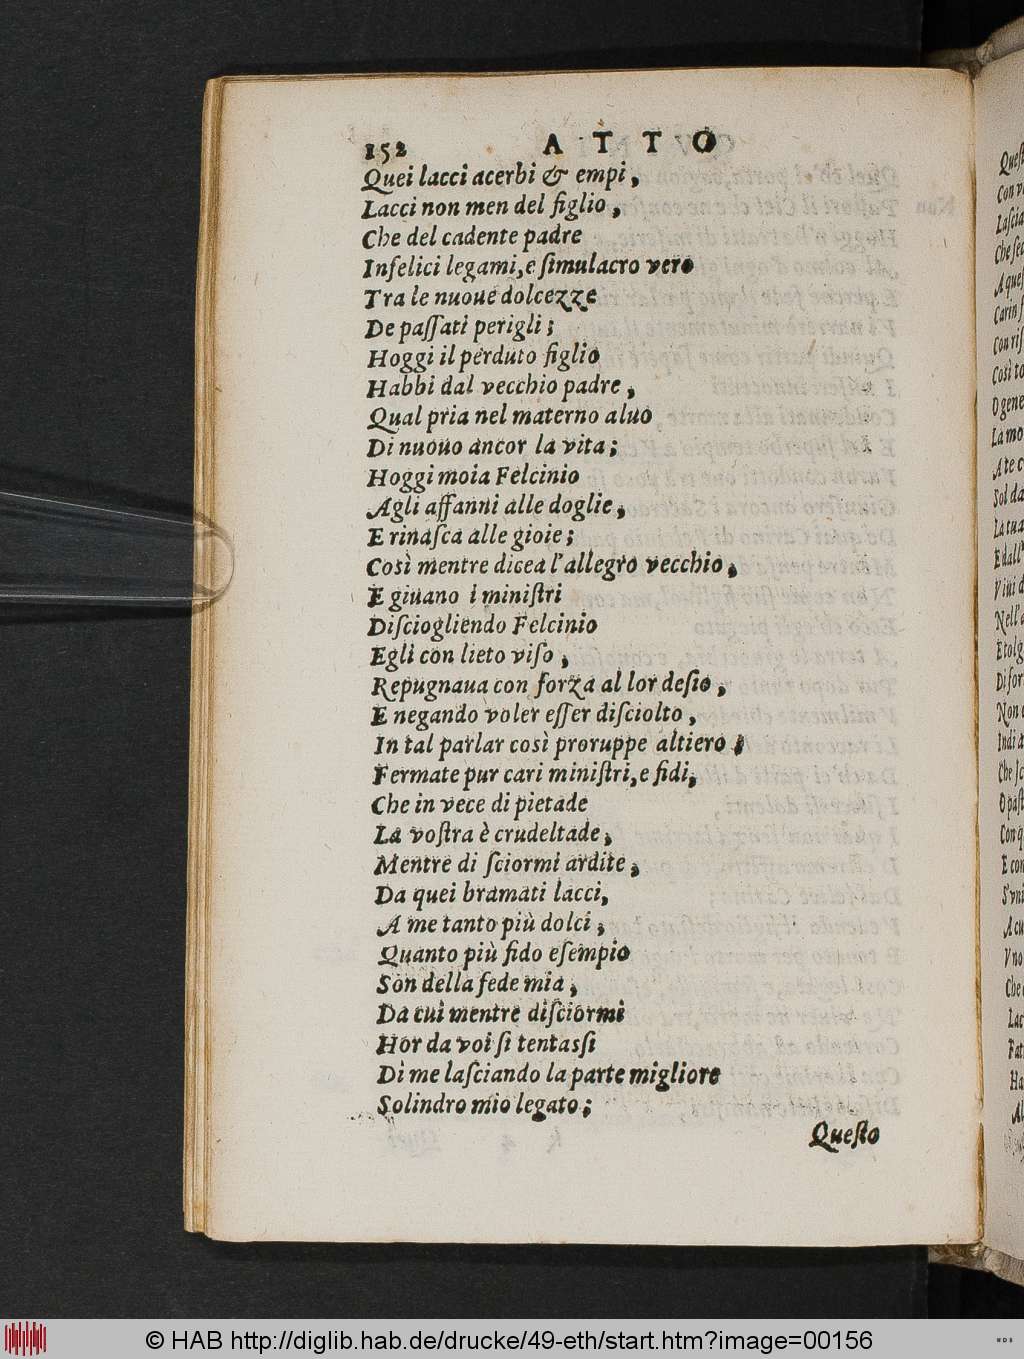 152 ATTO
Quei lacci acerbi & empi,
Lacci non men del figlio,
Che del cadente padre
Infelici legami, e ſimulacro vero
Tra le nuoue dolcezze
De paſſati perigli;
Hoggi il perduto figlio
Habbi dal vecchio padre,
Qual pria nel materno aluo
Di nuouo ancor la vita;
Hoggi moia Felcinio
Agli affanni alle doglie,
E rinaſca alle gioie;
Così mentre dicea l'allegro vecchio,
E giuano i miniſtri
Diſciogliendo Felcinio
Egli con lieto viſo,
Repugnaua con forza al lor deſio,
E negando voler eſſer diſciolto,
In tal parlar così proruppe altiero;
Fermate pur cari miniſtri, e fidi,
Che in vece di pietade
La voſtra è crudeltade,
Mentre di ſciormi ardite,
Da quei bramati lacci,
A me tanto più dolci,
Quanto più fido eſempio
Son della fede mia,
Da cui mentre diſciormi
Hor da voi ſi tentaſsi
Di me laſciando la parte migliore
Solindro mio legato;
Queſto
Queſt
Con v
Laſcia
Che ſe
A queſ
Carin
Con riſ
Così to
O gene
La mo
A te c
Sol da
La tua
E dall'
Viui d
Nell'a
E tolg
Di for
Non
Indi a
Che
O paſt
Con q
E con
A cu
Vno
Che
Fat
Ha
© HAB http://diglib.hab.de/drucke/49-eth/start.htm?image=00156